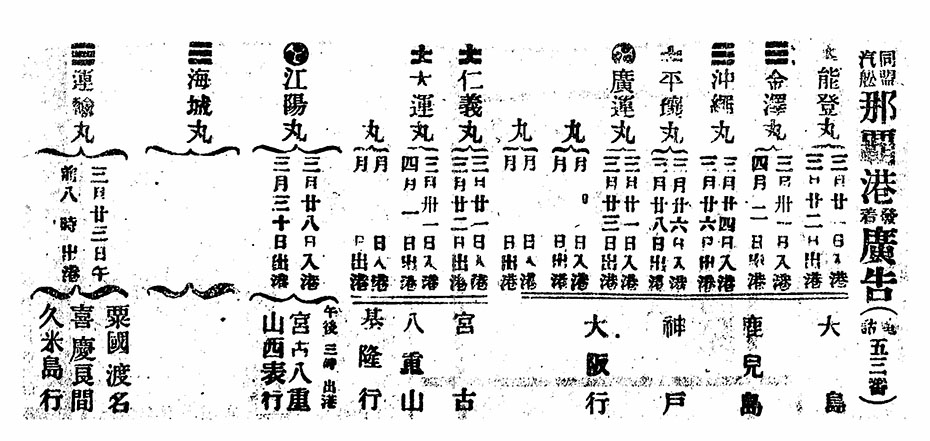 同盟汽船那覇港發着廣告(電話五三番)
能登丸
三月廿一日入港
三月廿二日出港
金澤丸
三月卅一日入港
四月二日出港
沖繩丸
三月廿四日入港
三月廿六日出港
平壤丸
三月廿六日入港
三月廿八日出港
廣運丸
三月廿一日入港
三月廿三日出港
丸
月 日入港
月 日出港
丸
月 日入港
月 日出港
大島
鹿兒島
神戸
大阪行
仁義丸
三月廿一日入港
三月廿二日出港
大運丸
三月卅一日入港
四月一日出港
丸
月 日入港
月 日出港
宮古
八重山
基隆行
江陽丸
三月廿八日入港
三月三十日出港
午後三時出港
宮古八重
山西表行
海城丸
運輸丸
三月廿三日午
前八時出港
粟國渡名
喜慶良間
久米島行